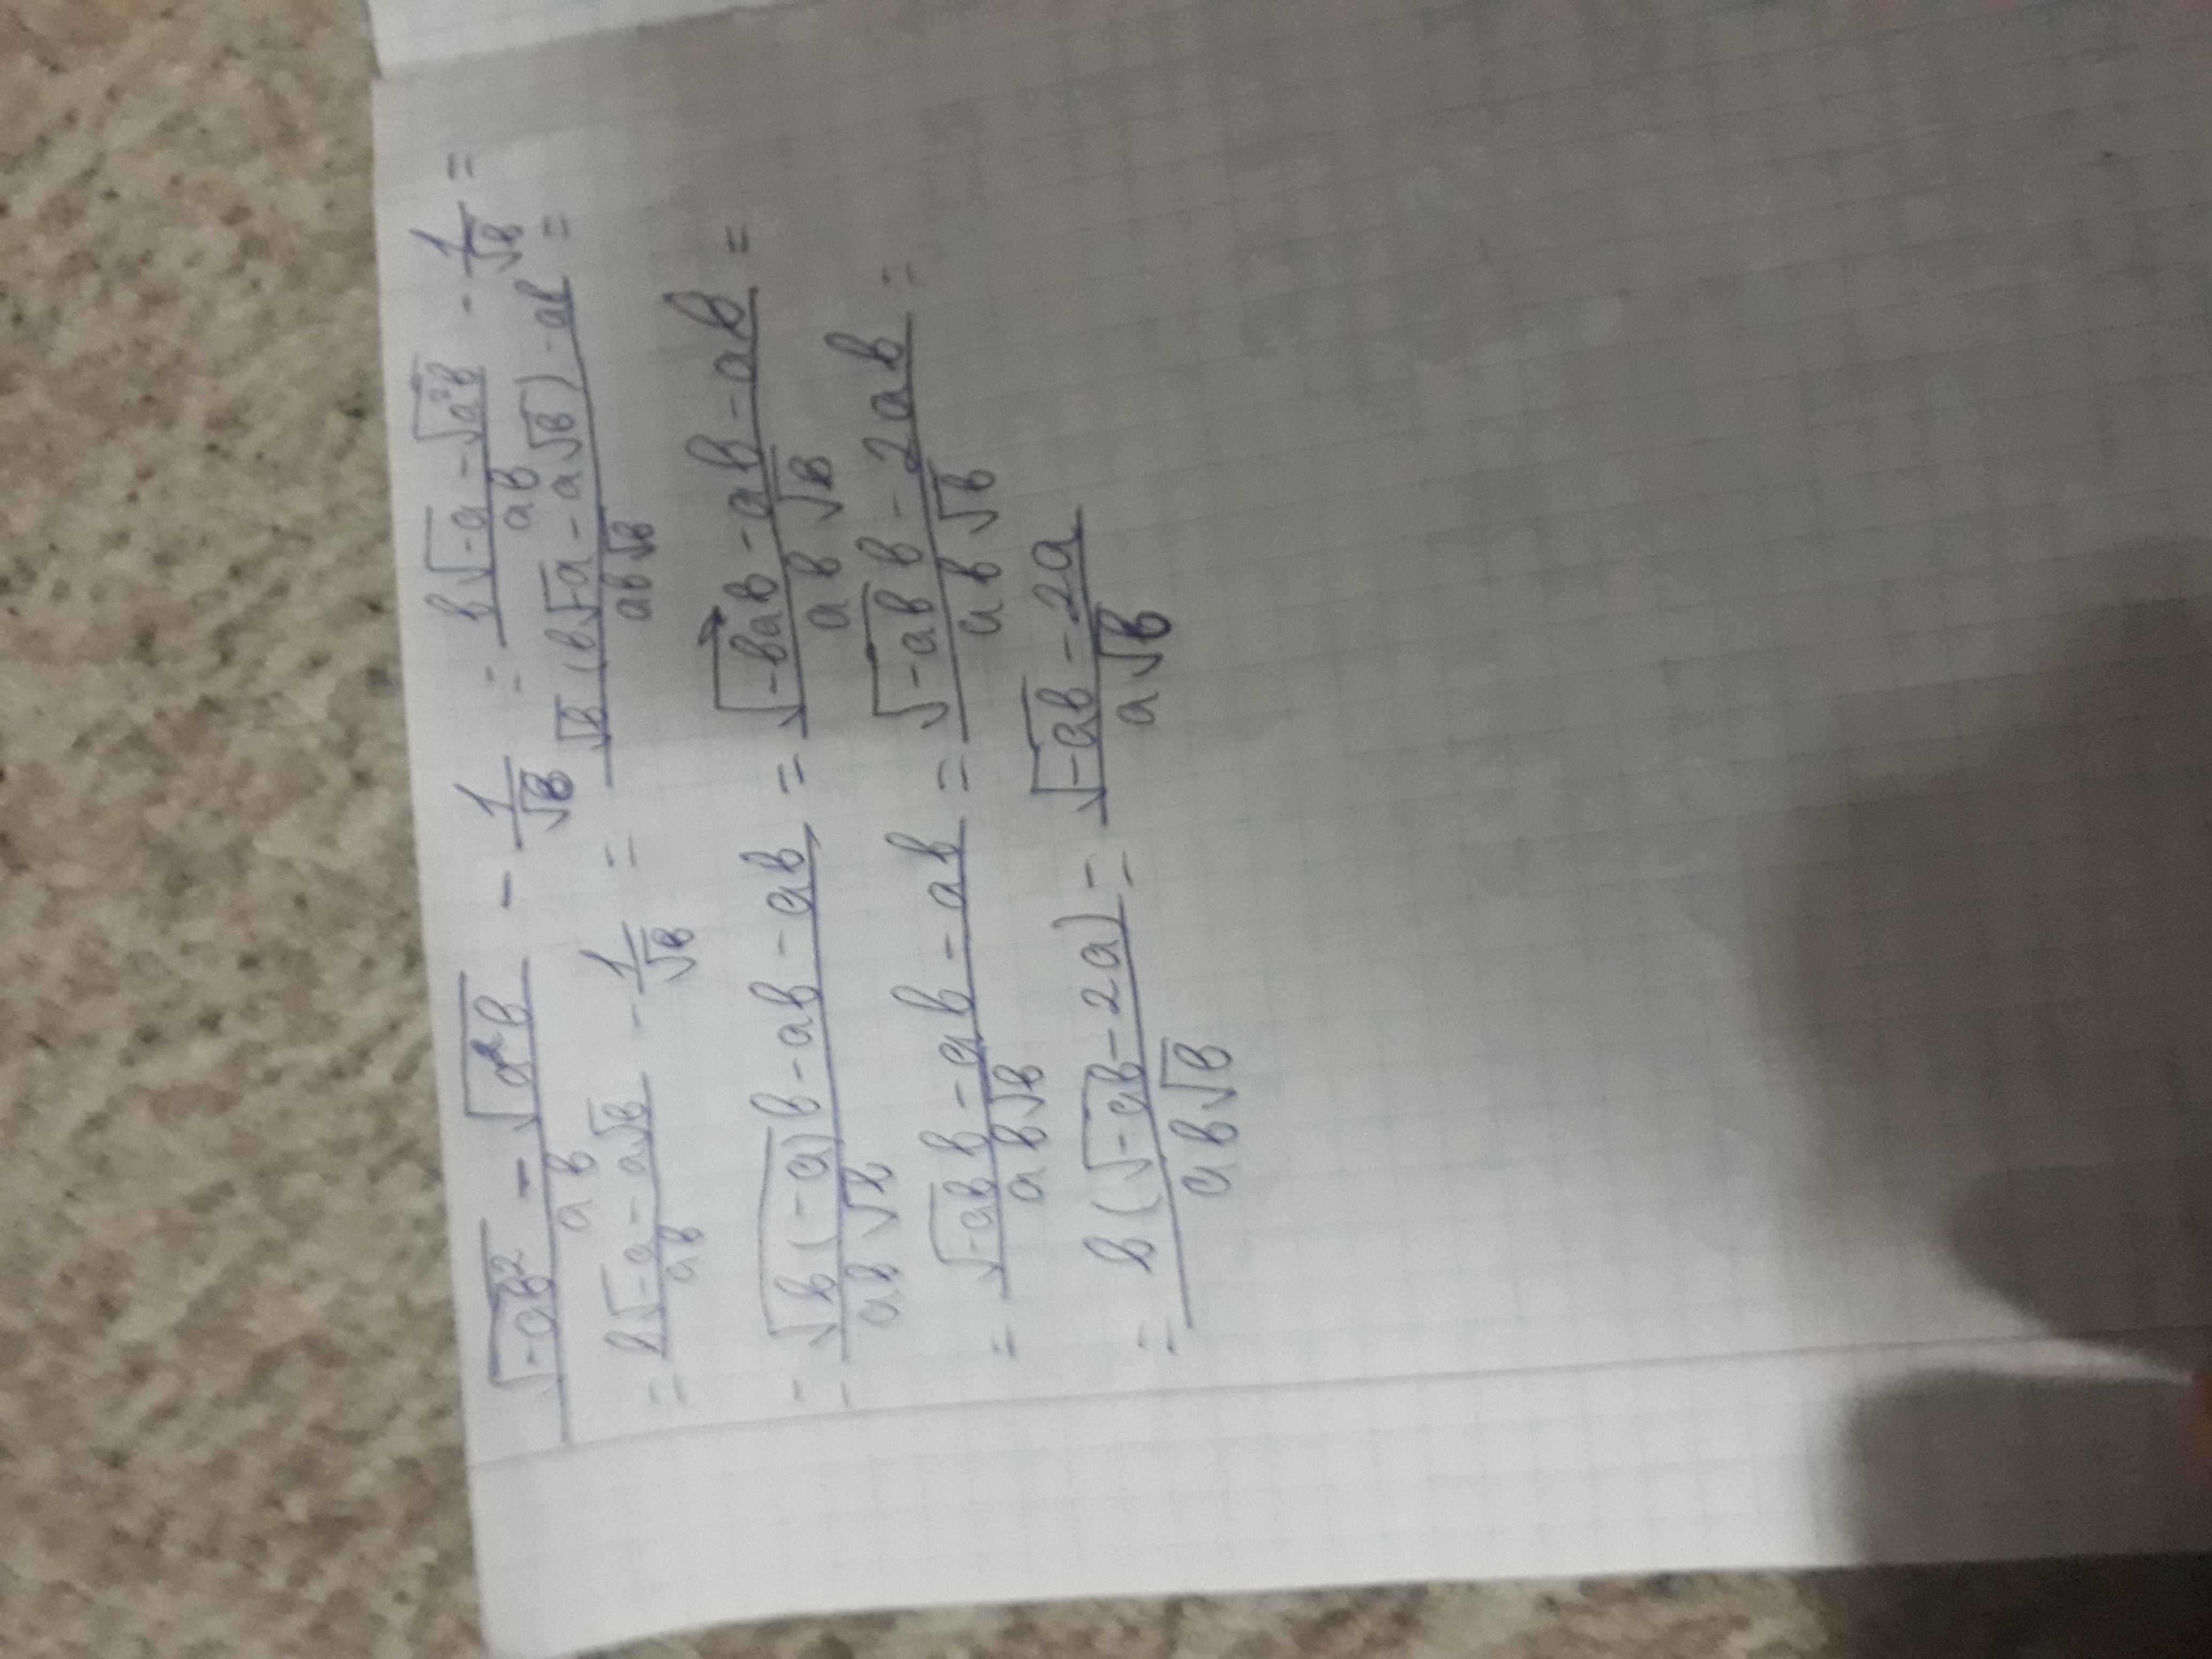 (√(-ab²) - √(a²b))/(ab) - 1/√b = (b√(-a) - √(a²b))/(ab) - 1/√b =
= (b√(-a) - a√b)/(ab) - 1/√b = (√b(b√(-a) - a√b) - ab)/(ab√b) =
= (√(b(-a))b - ab - ab)/(ab√b) = (√(-ba)b - ab - ab)/(ab√b) =
= (√(-ab)b - ab - ab)/(ab√b) = (√(-ab)b - 2ab)/(ab√b) =
= (b(√(-ab) - 2a))/(ab√b) = (√(-ab) - 2a)/(a√b)